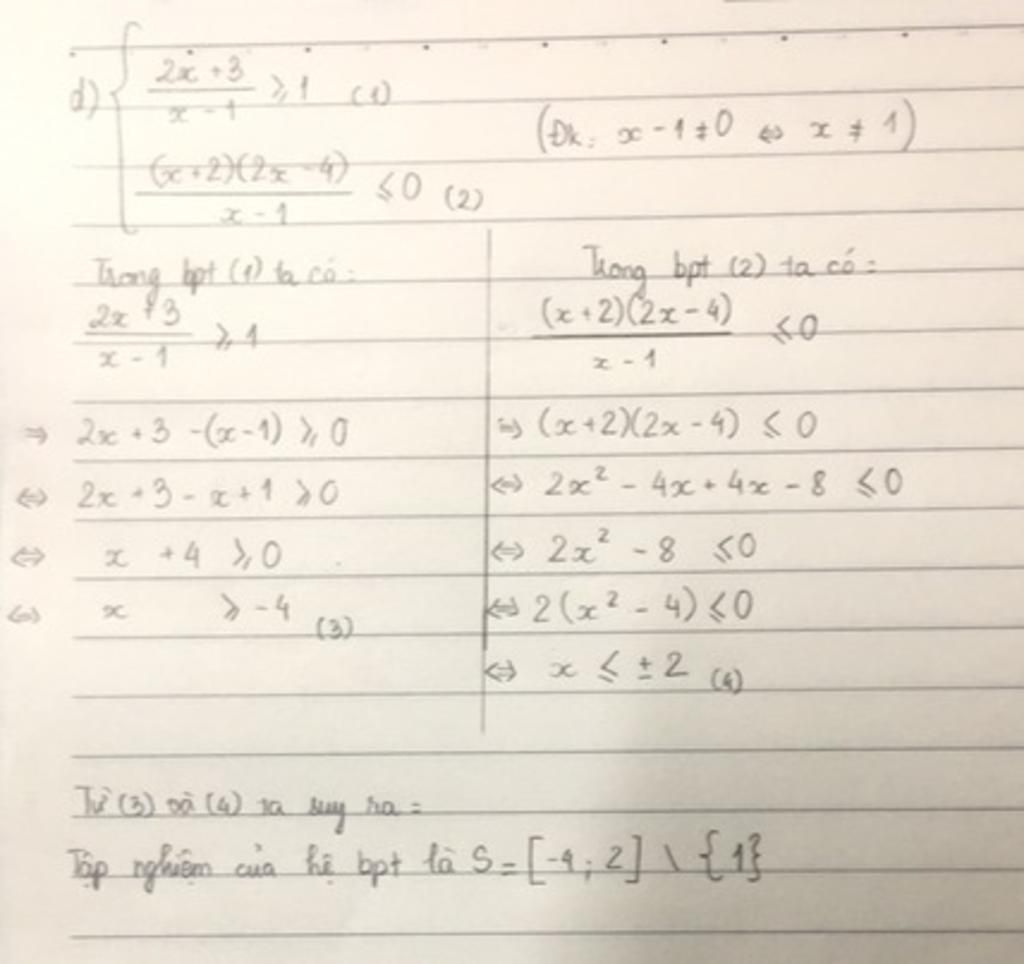 d) { (2x + 3)/(x - 1) ≥ 1 (1)
(Đk: x - 1 ≠ 0 ⇔ x ≠ 1)
(x+2)(2x - 4)/(x - 1) ≤ 0 (2)
Trong bpt (1) ta có:
(2x + 3)/(x - 1) ≥ 1
⇒ 2x + 3 -(x-1) ≥ 0
⇔ 2x + 3 - x + 1 ≥ 0
⇔ x + 4 ≥ 0
⇔ x ≥ -4 (3)
Trong bpt (2) ta có:
(x+2)(2x - 4)/(x - 1) ≤ 0
⇒ (x+2)(2x - 4) ≤ 0
⇔ 2x² - 4x + 4x - 8 ≤ 0
⇔ 2x² - 8 ≤ 0
⇔ 2(x² - 4) ≤ 0
⇔ x ≤ ± 2 (4)
Từ (3) và (4) ta suy ra:
Tập nghiệm của hệ bpt là S = [-4; 2] \ {1}